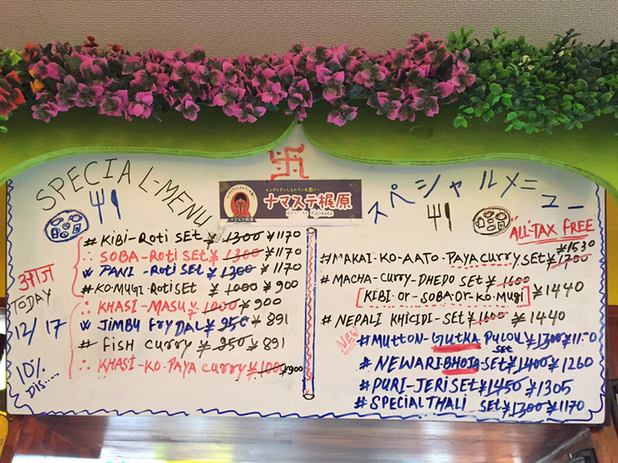 SPECIAL-MENU
# KIBI-ROTI SET ¥1300 ¥1170
∴ SOBA-ROTI SET ¥1300 ¥1170
PANI-ROTI SET ¥1300 ¥1170
# KO-MUGI ROTI SET ¥1000 ¥900
∴ KHASI-MASU ¥1000 ¥900
JIMBU FRY DAL ¥950 ¥891
# FISH CURRY ¥950 ¥891
∴ KHASI-KO-PAYA CURRY ¥1000 ¥900
आज
TODAY
12/17
10%
DIS....
卐
インディアンレストラン
ナマステ梶原
ナマステ梶原
スペシャルメニュー
"ALL" TAX FREE
# MAKAI-KO-AATO-PAYA CURRY SET ¥1700 ¥1530
# MACHA-CURRY-DHEDO SET ¥1600 ¥1440
[KIBI or SOBA or KO.MUGI]
# NEPALI KHICIDI-SET ¥1600 ¥1440
NEW
# MUTTON-GUTKA PULOU SET ¥1300 ¥1170
# NEWARI-BHOJ SET ¥1400 ¥1260
# PURI-JERI SET ¥1450 ¥1305
# SPECIAL THALI SET ¥1300 ¥1170